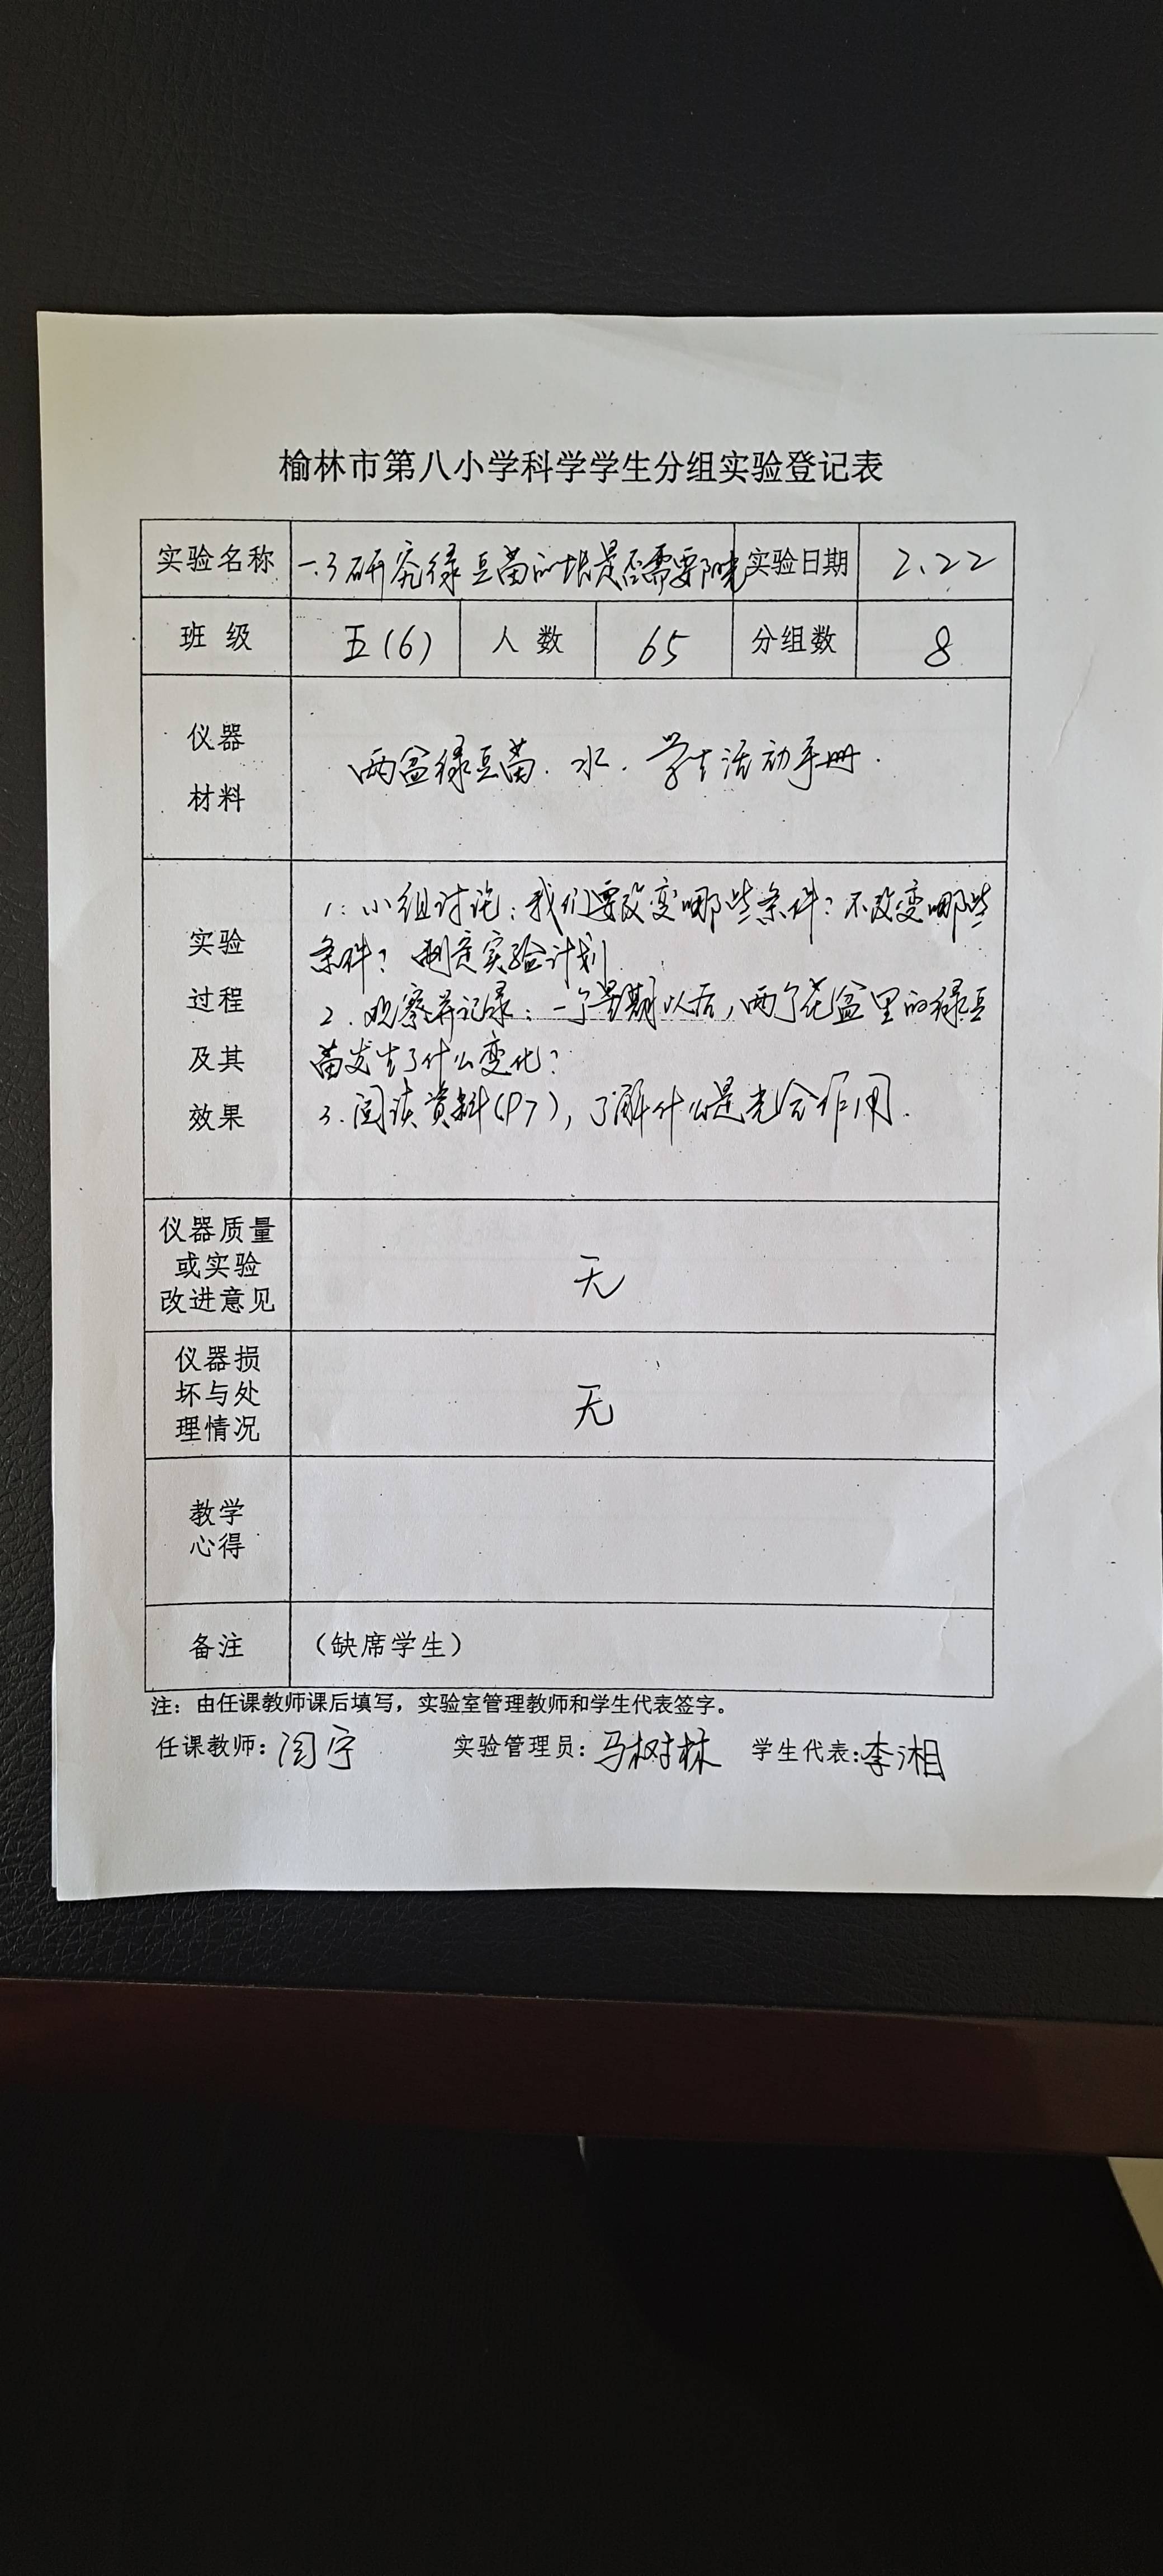 榆林市第八小学科学学生分组实验登记表
实验名称 一.3研究绿豆苗的生长是否需要阳光 实验日期 2.22
班级 五(6) 人数 65 分组数 8
仪器
材料
两盆绿豆苗. 水. 学生活动手册.
实验
过程
及其
效果
1: 小组讨论:我们要改变哪些条件?不改变哪些
条件? 制定实验计划
2. 观察并记录:一个星期以后,两个花盆里的绿豆
苗发生了什么变化?
3. 阅读资料(P7),了解什么是光合作用.
仪器质量
或实验
改进意见
无
仪器损
坏与处
理情况
无
教学
心得
备注 (缺席学生)
注:由任课教师课后填写,实验室管理教师和学生代表签字。
任课教师:闫宁 实验管理员:马树林 学生代表:李湘